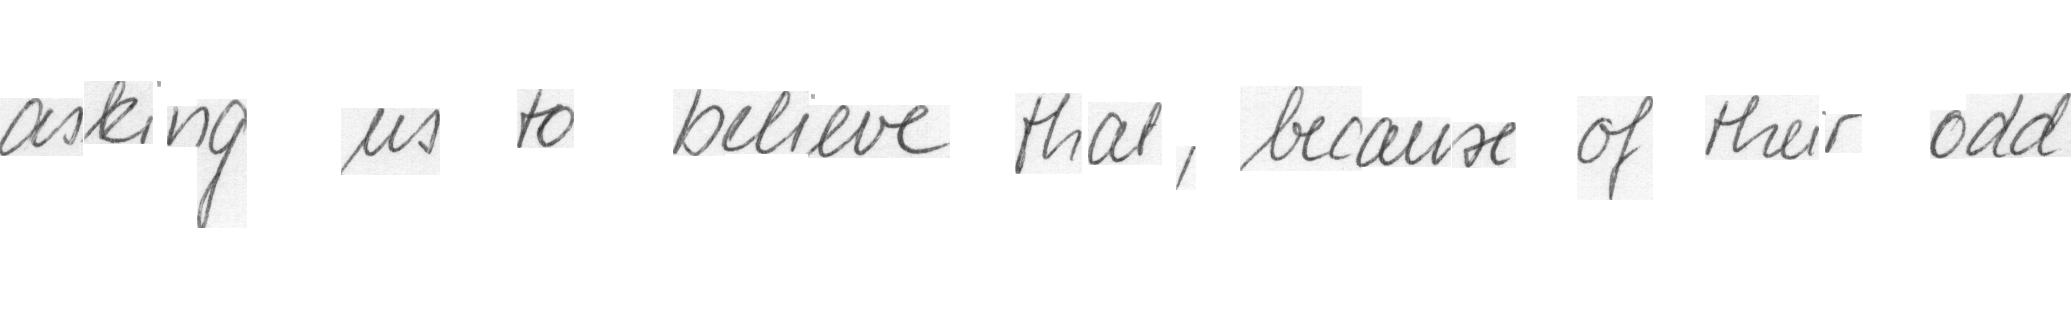 asking us to believe that, because of their odd